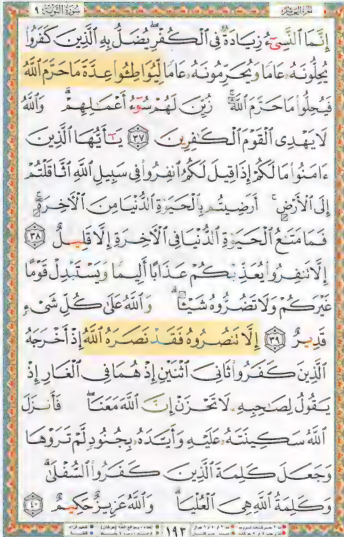 سُورَةُ التَّوْبَةِ ٩
إِنَّمَا النَّسِيءُ زِيَادَةٌ فِي الْكُفْرِ يُضَلُّ بِهِ الَّذِينَ كَفَرُوا
يُحِلُّونَهُ عَامًا وَيُحَرِّمُونَهُ عَامًا لِيُوَاطِئُوا عِدَّةَ مَا حَرَّمَ اللَّهُ
فَيُحِلُّوا مَا حَرَّمَ اللَّهُ زُيِّنَ لَهُمْ سُوءُ أَعْمَالِهِمْ وَاللَّهُ
لَا يَهْدِي الْقَوْمَ الْكَافِرِينَ ٣٧ يَا أَيُّهَا الَّذِينَ
ءَامَنُوا مَا لَكُمْ إِذَا قِيلَ لَكُمُ انْفِرُوا فِي سَبِيلِ اللَّهِ اثَّاقَلْتُمْ
إِلَى الْأَرْضِ أَرَضِيتُمْ بِالْحَيَوٰةِ الدُّنْيَا مِنَ الْآخِرَةِ
فَمَا مَتَاعُ الْحَيَوٰةِ الدُّنْيَا فِي الْآخِرَةِ إِلَّا قَلِيلٌ ٣٨
إِلَّا تَنْفِرُوا يُعَذِّبْكُمْ عَذَابًا أَلِيمًا وَيَسْتَبْدِلْ قَوْمًا
غَيْرَكُمْ وَلَا تَضُرُّوهُ شَيْئًا وَاللَّهُ عَلَىٰ كُلِّ شَيْءٍ
قَدِيرٌ ٣٩ إِلَّا تَنْصُرُوهُ فَقَدْ نَصَرَهُ اللَّهُ إِذْ أَخْرَجَهُ
الَّذِينَ كَفَرُوا ثَانِيَ اثْنَيْنِ إِذْ هُمَا فِي الْغَارِ إِذْ
يَقُولُ لِصَاحِبِهِ لَا تَحْزَنْ إِنَّ اللَّهَ مَعَنَا فَأَنْزَلَ
اللَّهُ سَكِينَتَهُ عَلَيْهِ وَأَيَّدَهُ بِجُنُودٍ لَمْ تَرَوْهَا
وَجَعَلَ كَلِمَةَ الَّذِينَ كَفَرُوا السُّفْلَىٰ
وَكَلِمَةُ اللَّهِ هِيَ الْعُلْيَا وَاللَّهُ عَزِيزٌ حَكِيمٌ ٤٠
١٩٣